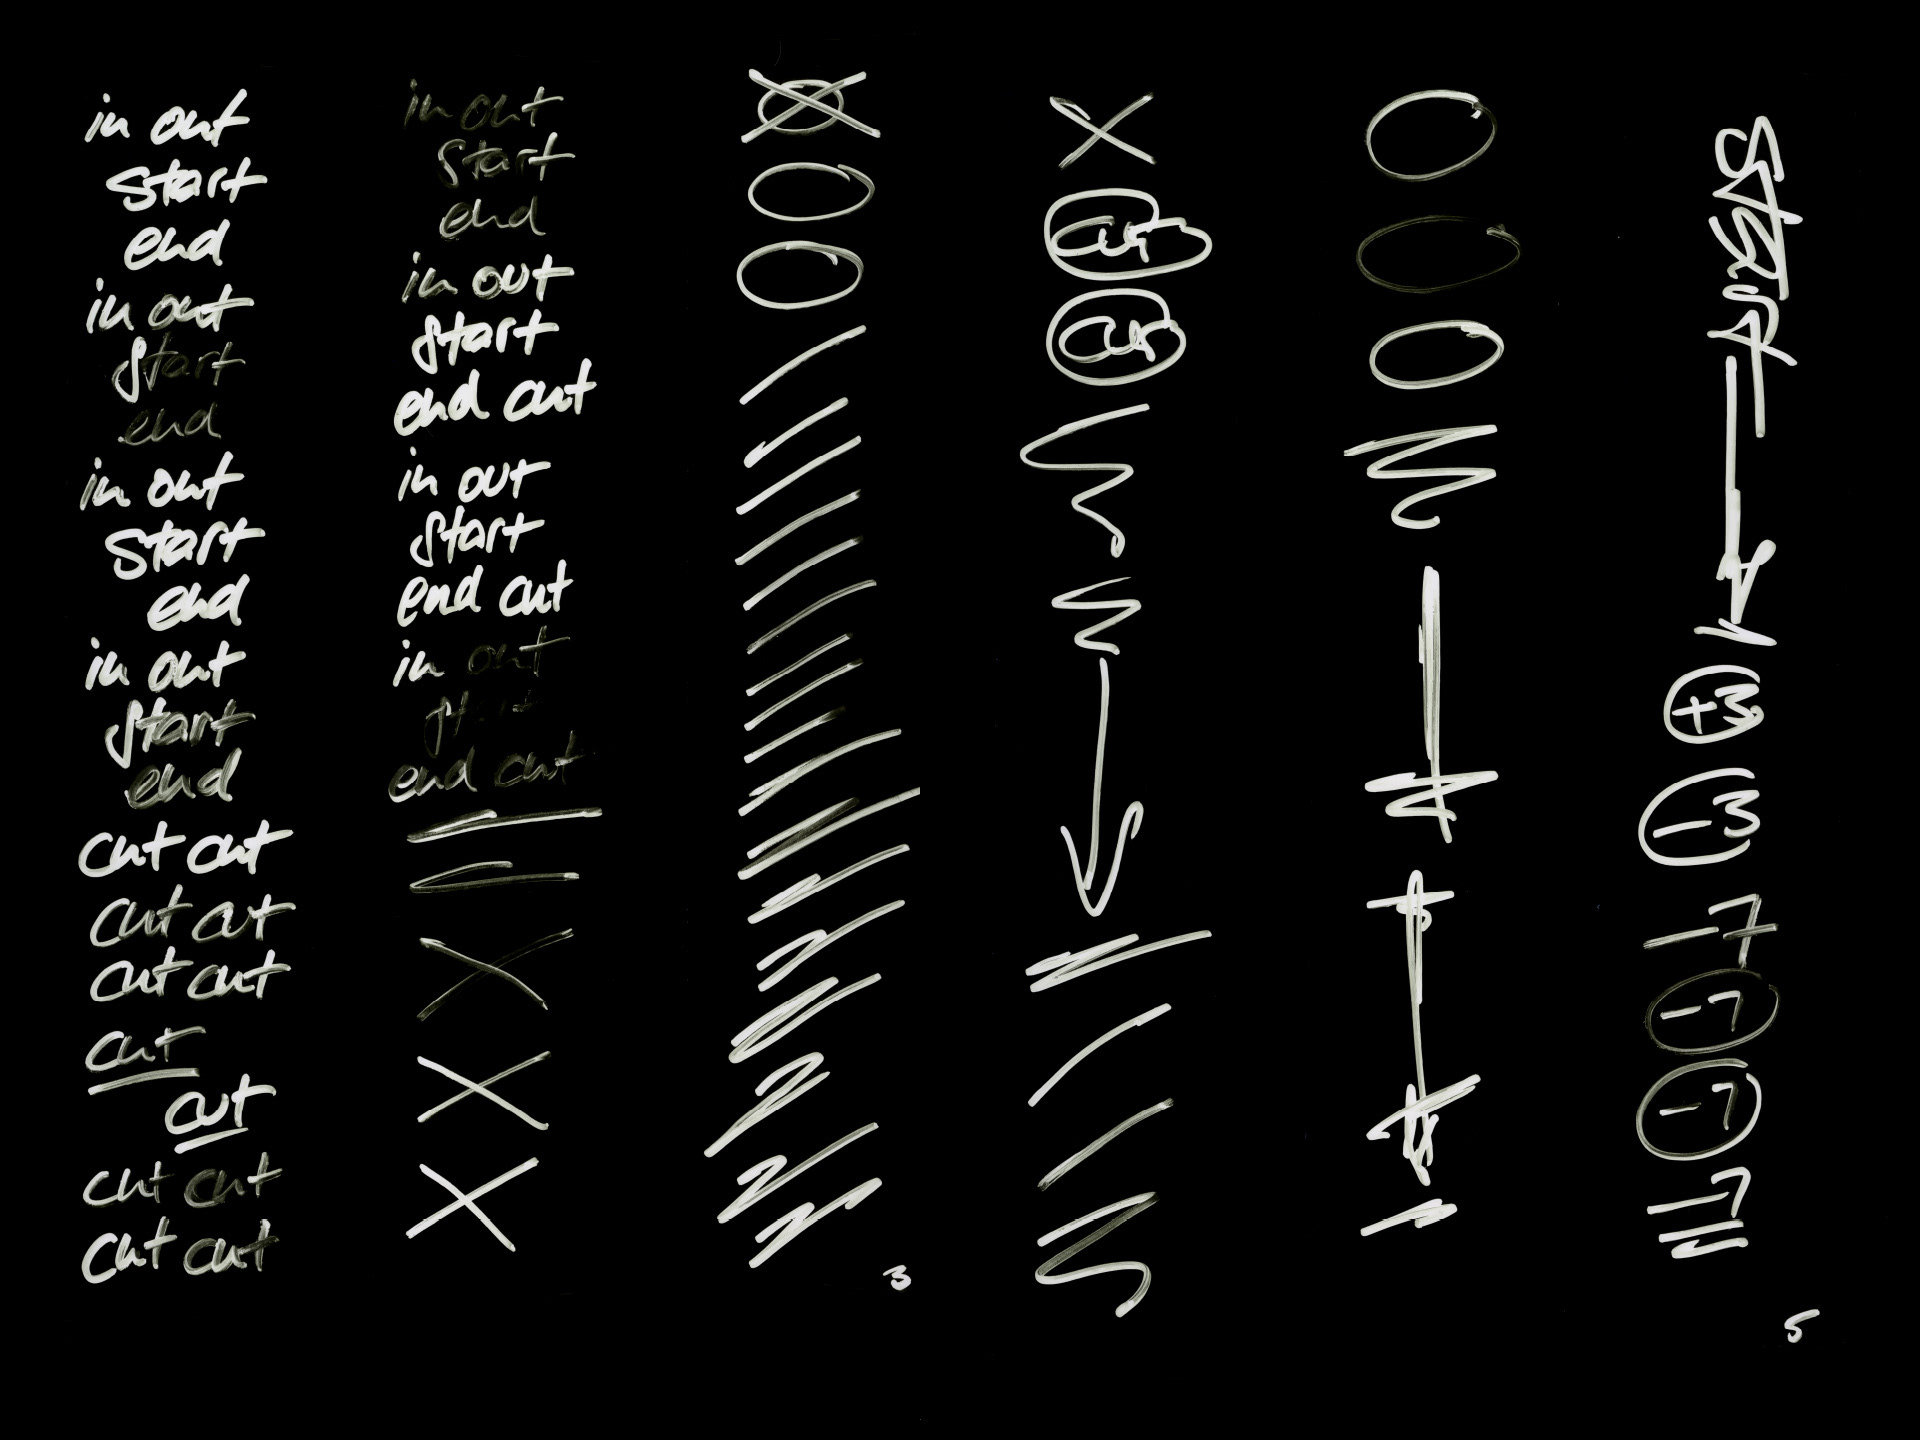 in out
start
end
in out
start
end
in out
start
end
in out
start
end
cut cut
cut cut
cut cut
cut
cut
cut cut
cut cut
in out
start
end
in out
start
end cut
in out
start
end cut
in out
start
end cut
3
cut
cut
start
+3
-3
-7
-7
-7
-7
5